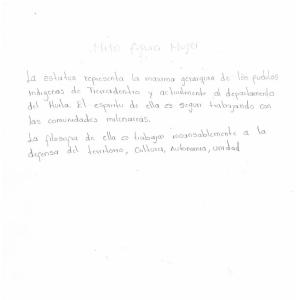 Mito Agua Mujer
La estatua representa la maxima gerarquia de los pueblos
indigenas de Tierradentro y actualmente al departamento
del Huila. El espiritu de ella es seguir trabajando con
las comunidades milenarias.
La filosofia de ella es trabajar incansablemente a la
defensa del territorio, Cultura, Autonomia, unidad